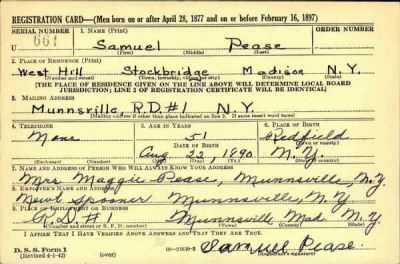 REGISTRATION CARD—(Men born on or after April 28, 1877 and on or before February 16, 1897)
SERIAL NUMBER 1. NAME (Print) ORDER NUMBER
U 661 Samuel Pease
(First) (Middle) (Last)
2. PLACE OF RESIDENCE (Print)
West Hill Stockbridge Madison N.Y.
(Number and street) (Town, township, village, or city) (County) (State)
[THE PLACE OF RESIDENCE GIVEN ON THE LINE ABOVE WILL DETERMINE LOCAL BOARD
JURISDICTION; LINE 2 OF REGISTRATION CERTIFICATE WILL BE IDENTICAL]
3. MAILING ADDRESS
Munnsville, R.D.#1 N.Y.
[Mailing address if other than place indicated on line 2. If same insert word same]
4. TELEPHONE 5. AGE IN YEARS 6. PLACE OF BIRTH
None 51 Redfield
DATE OF BIRTH (Town or county)
Aug 23, 1890 N.Y.
(Exchange) (Number) (Mo.) (Day) (Yr.) (State or country)
7. NAME AND ADDRESS OF PERSON WHO WILL ALWAYS KNOW YOUR ADDRESS
Mrs Maggie Pease, Munnsville, N.Y.
8. EMPLOYER'S NAME AND ADDRESS
Newt Spooner Munnsville, N.Y.
9. PLACE OF EMPLOYMENT OR BUSINESS
R.D. #1 Munnsville Mad. N.Y.
(Number and street or R. F. D. number) (Town) (County) (State)
I AFFIRM THAT I HAVE VERIFIED ABOVE ANSWERS AND THAT THEY ARE TRUE.
D. S. S. Form 1
(Revised 4-1-42) (over) Samuel Pease
(Registrant's signature)